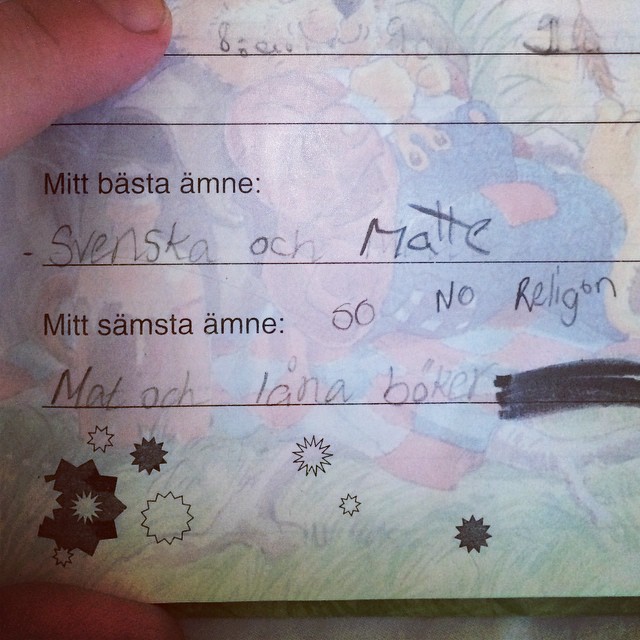 Mitt bästa ämne:
Svenska och Matte
Mitt sämsta ämne: SO NO Religon
Mat och låna böker